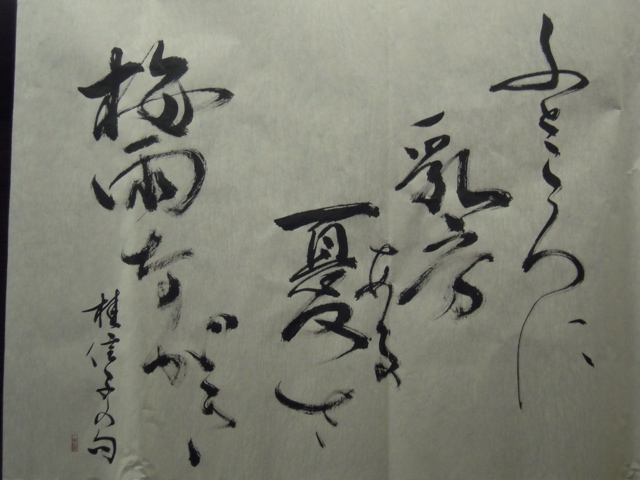 ふところに
乳房
ある
憂さ
梅雨ながき
桂信子の句